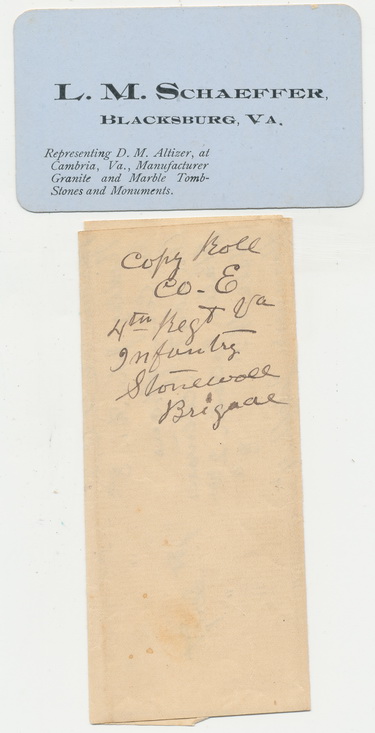 L. M. SCHAEFFER,
BLACKSBURG, VA.
Representing D. M. Altizer, at
Cambria, Va., Manufacturer
Granite and Marble Tomb-
Stones and Monuments.
Copy Roll
Co- E
4th Regt Va
Infantry
Stonewall
Brigade